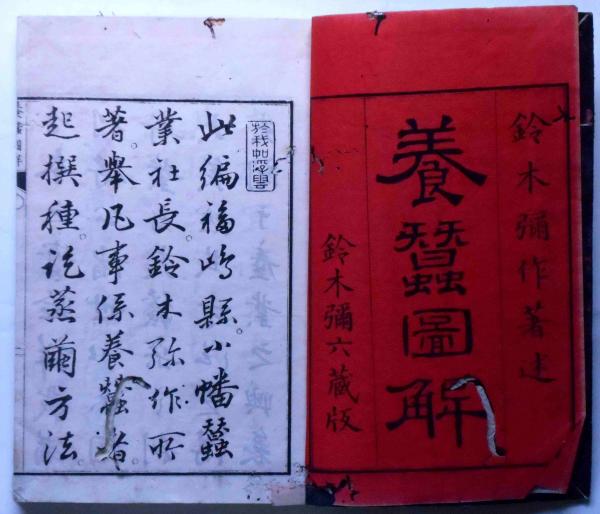 鈴木彌作著述
養蠶圖解
鈴木彌六藏版
於我如浮雲
此編福嶋縣。小幡蠶
業社長。鈴木弥作所
著。舉凡事係養蠶者。
起撰種。訖蒸繭方法。